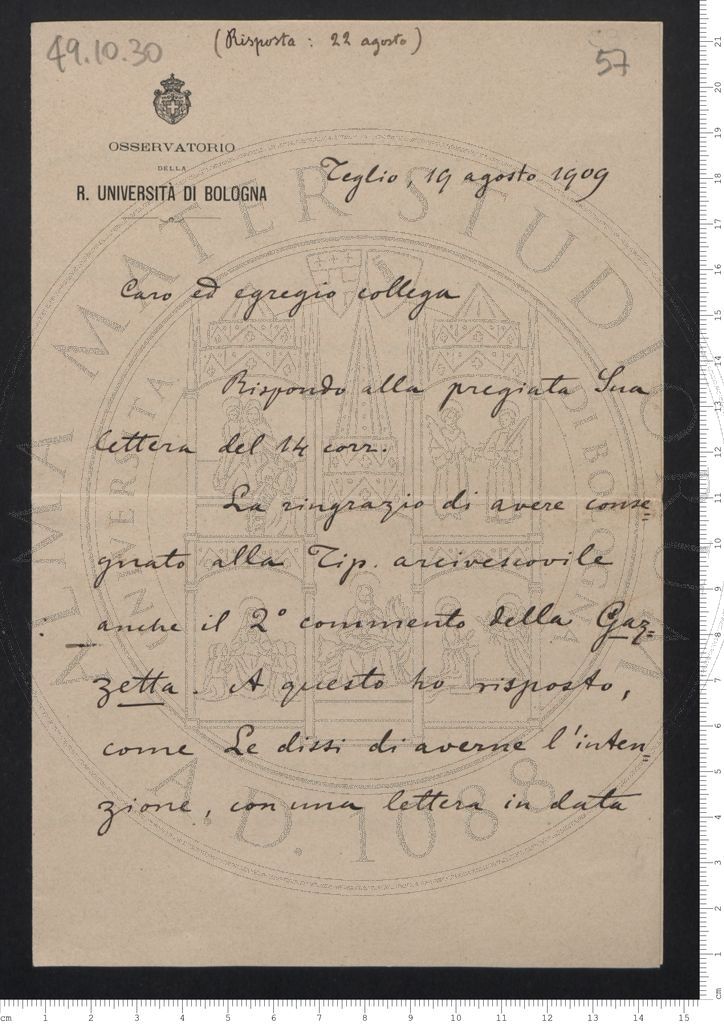 49.10.30
(Risposta: 22 agosto)
57
OSSERVATORIO
DELLA
R. UNIVERSITÀ DI BOLOGNA
Teglio, 19 agosto 1909
Caro ed egregio collega
Rispondo alla pregiata Sua
lettera del 14 corr.
La ringrazio di avere conse=
gnato alla Tip. arcivescovile
anche il 2° commento della Gaz=
zetta. A questo ho risposto,
come Le dissi di averne l'inten=
zione, con una lettera in data
ALMA MATER STUDIORUM
UNIVERSITÀ DI BOLOGNA
A.D. 1088